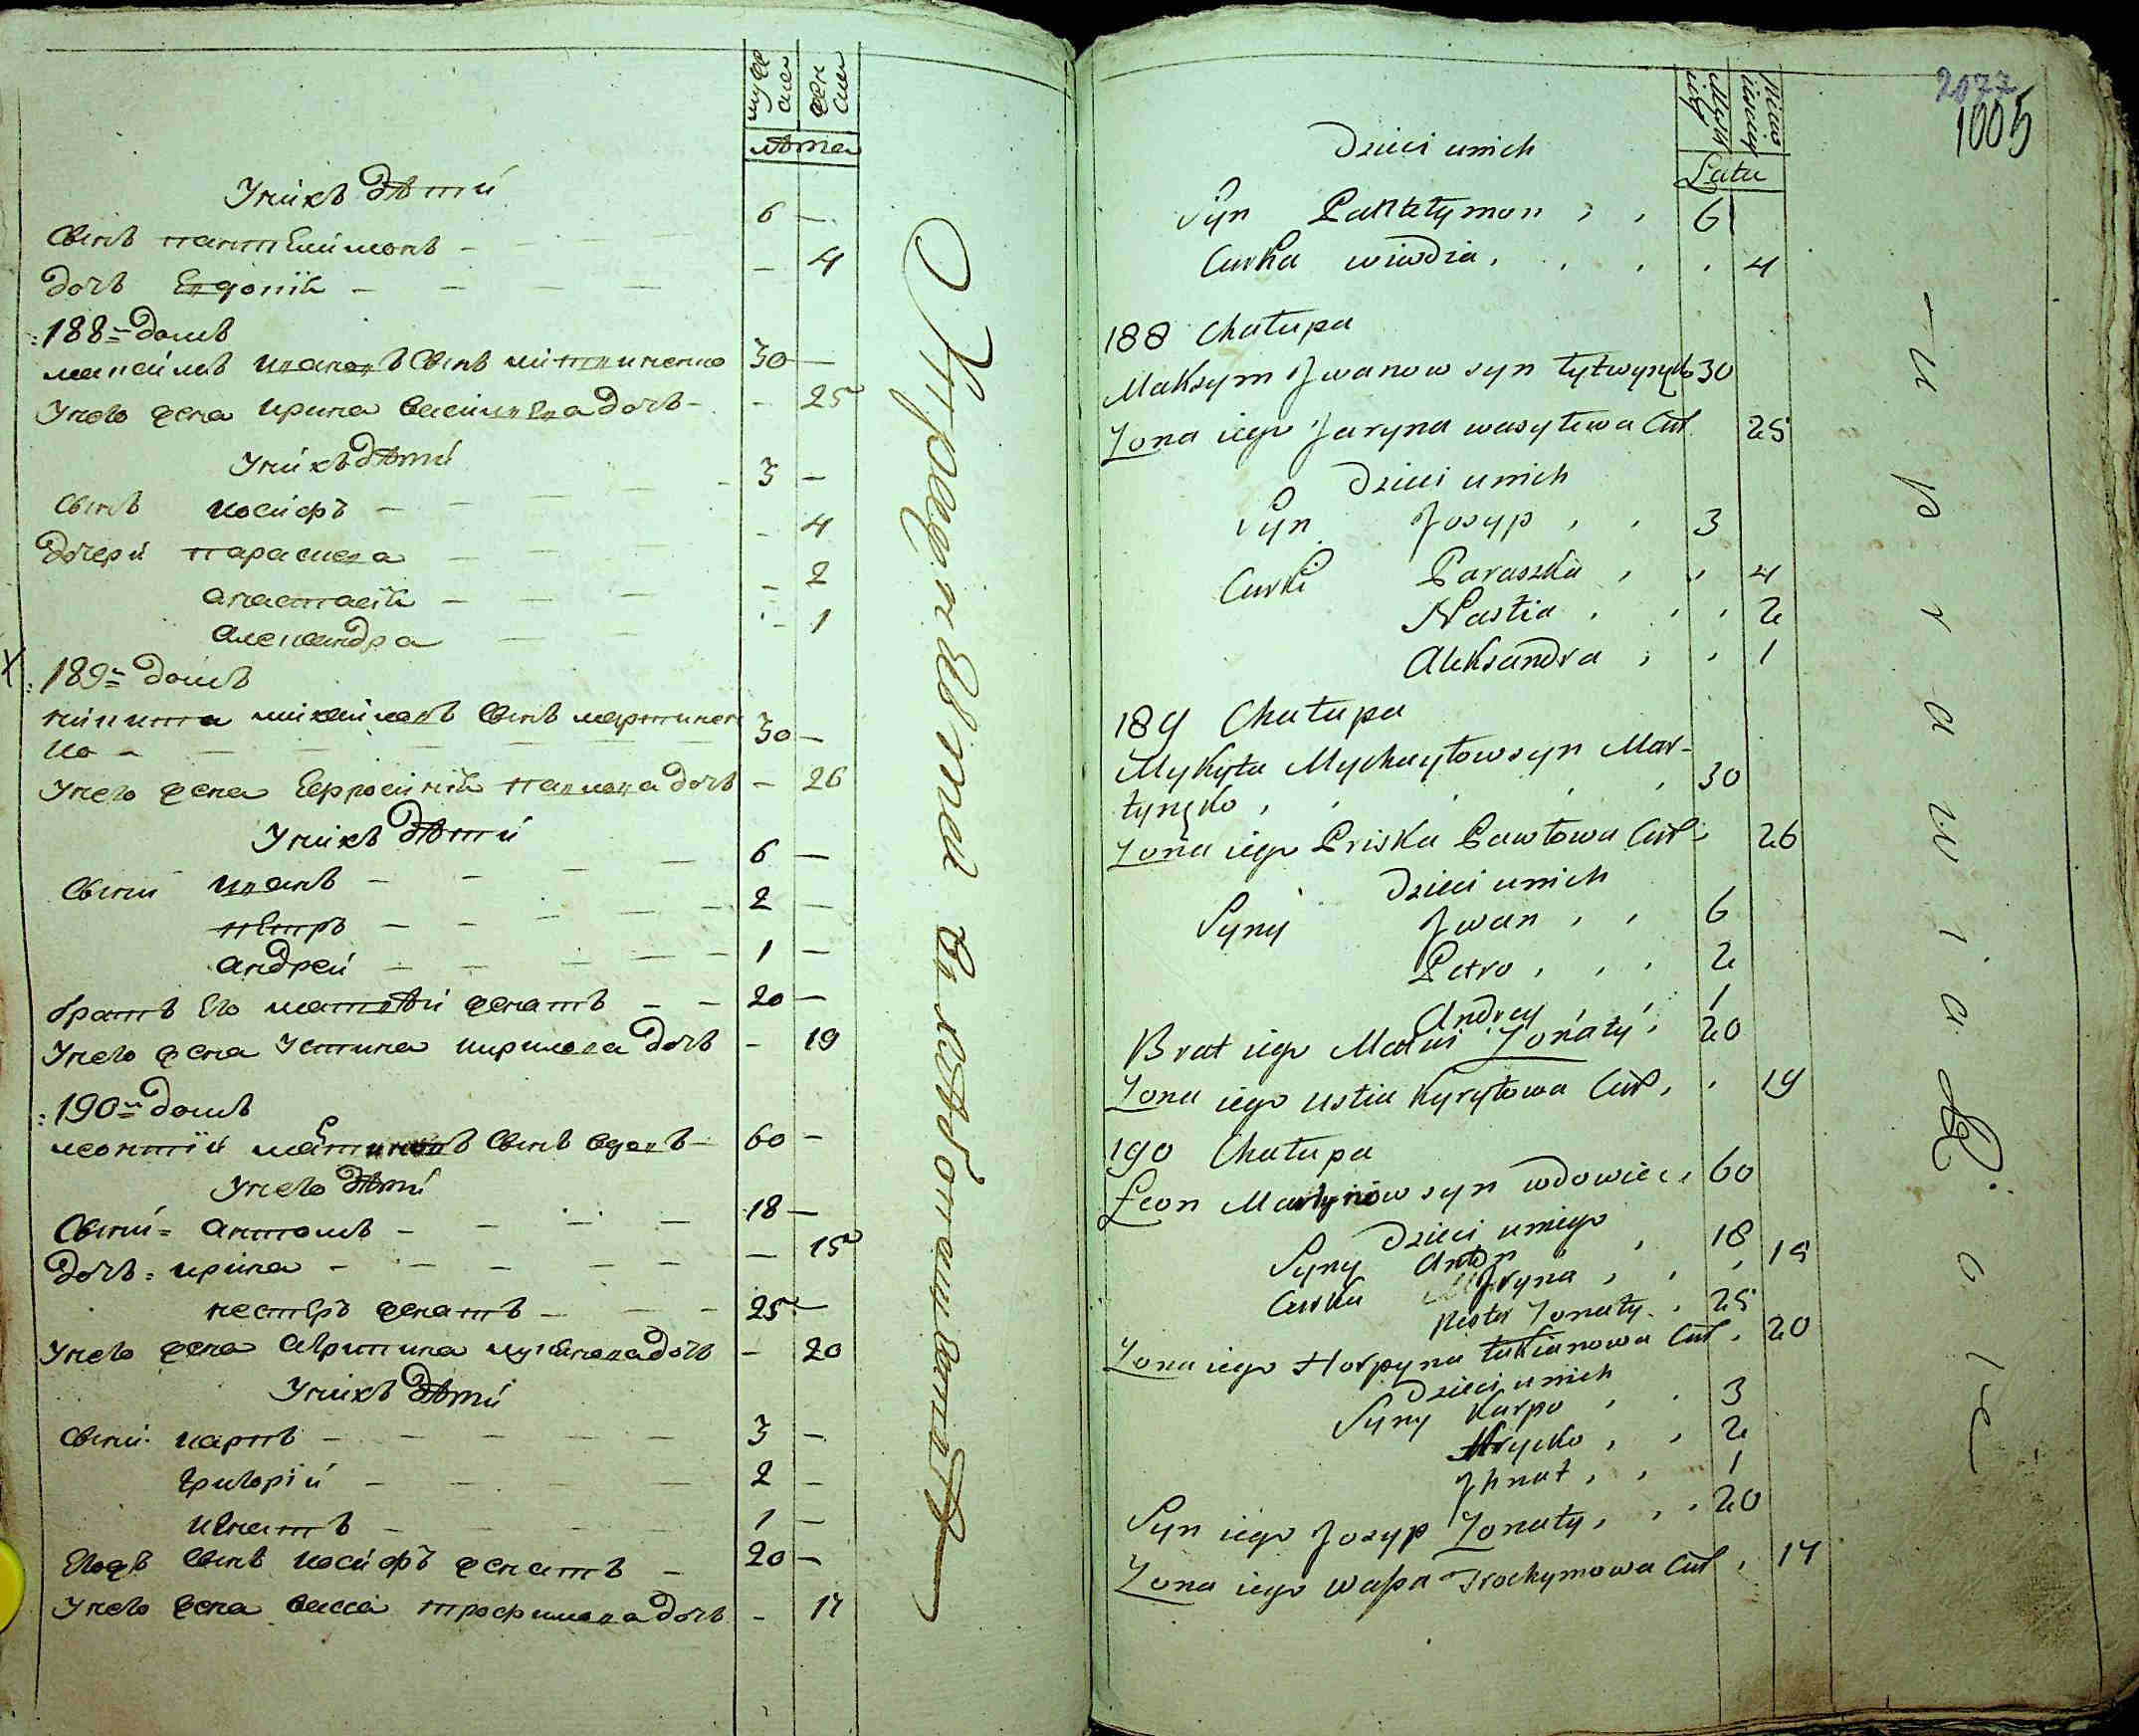 муж
ска
жен
ска
лѣта
У нихъ дѣти
сынъ пантелимонъ - 6 -
дочь Евдокія - - 4
188-домъ
максимъ ивановъ сынъ литвиненко 30 -
У него жена ирина василева дочь - - 25
У нихъ дѣти
сынъ иосифъ - 3 -
дочери параскева - - 4
анастасія - - 2
александра - - 1
189-домъ
никита михайловъ сынъ мартинен
ко - 30 -
У него жена Евфросинія павлова дочь - 26
У нихъ дѣти
сыни иванъ - 6 -
пѣтръ - 2 -
андрей - 1 -
братъ его матвѣй женатъ - 20 -
У него жена Устина кирилова дочь - 19
190-домъ
леонтій мартиновъ сынъ вдовъ - 60 -
У него дѣти
сыни антонъ - 18 -
дочь ирина - - 15
нестеръ женатъ - 25 -
У него жена агрипина лукянова дочь - 20
У нихъ дѣти
сыни карпъ - 3 -
григорій - 2 -
игнатъ - 1 -
Егожъ сынъ иосифъ женатъ - 20 -
У него жена васса трофимова дочь - 17
2077
1005
Dzieci unich
Lata
Syn Pantełymon , , 6
Curka wiwdia , . , . 4
188 Chałupa
Maksym Jwanow syn łytwynęko 30
Zona iego Jaryna wasylewa Cur. 25
Dzieci unich
Syn Josyp , , 3
Curki Paraszka , , 4
Nastia , , , 2
Aleksandra , , 1
189 Chałupa
Mykyta Mychayłow syn Mar-
tynęko , , , , , 30
Zona iego Priska Pawłowa Cur: 26
Dzieci unich
Syny Jwan , , 6
Petro , , , 2
Andrey , , , 1
Brat iego Matwi Zonaty 20
Zona iego ustia Kyryłowa Cur, , 19
190 Chałupa
Leon Martynow syn wdowiec , 60
Dzieci uniego
Syny Anton , , 18
Curka Jryna , , , 15
Nester Zonaty . , 25
Zona iego Horpyna łukianowa Cur , 20
Dzieci unich
Syny Karpo , , 3
Hrycko , , 2
Jhnat , , 1
Syn iego Josyp Zonaty , , , 20
Zona iego waśa Trochymowa Cur , 17